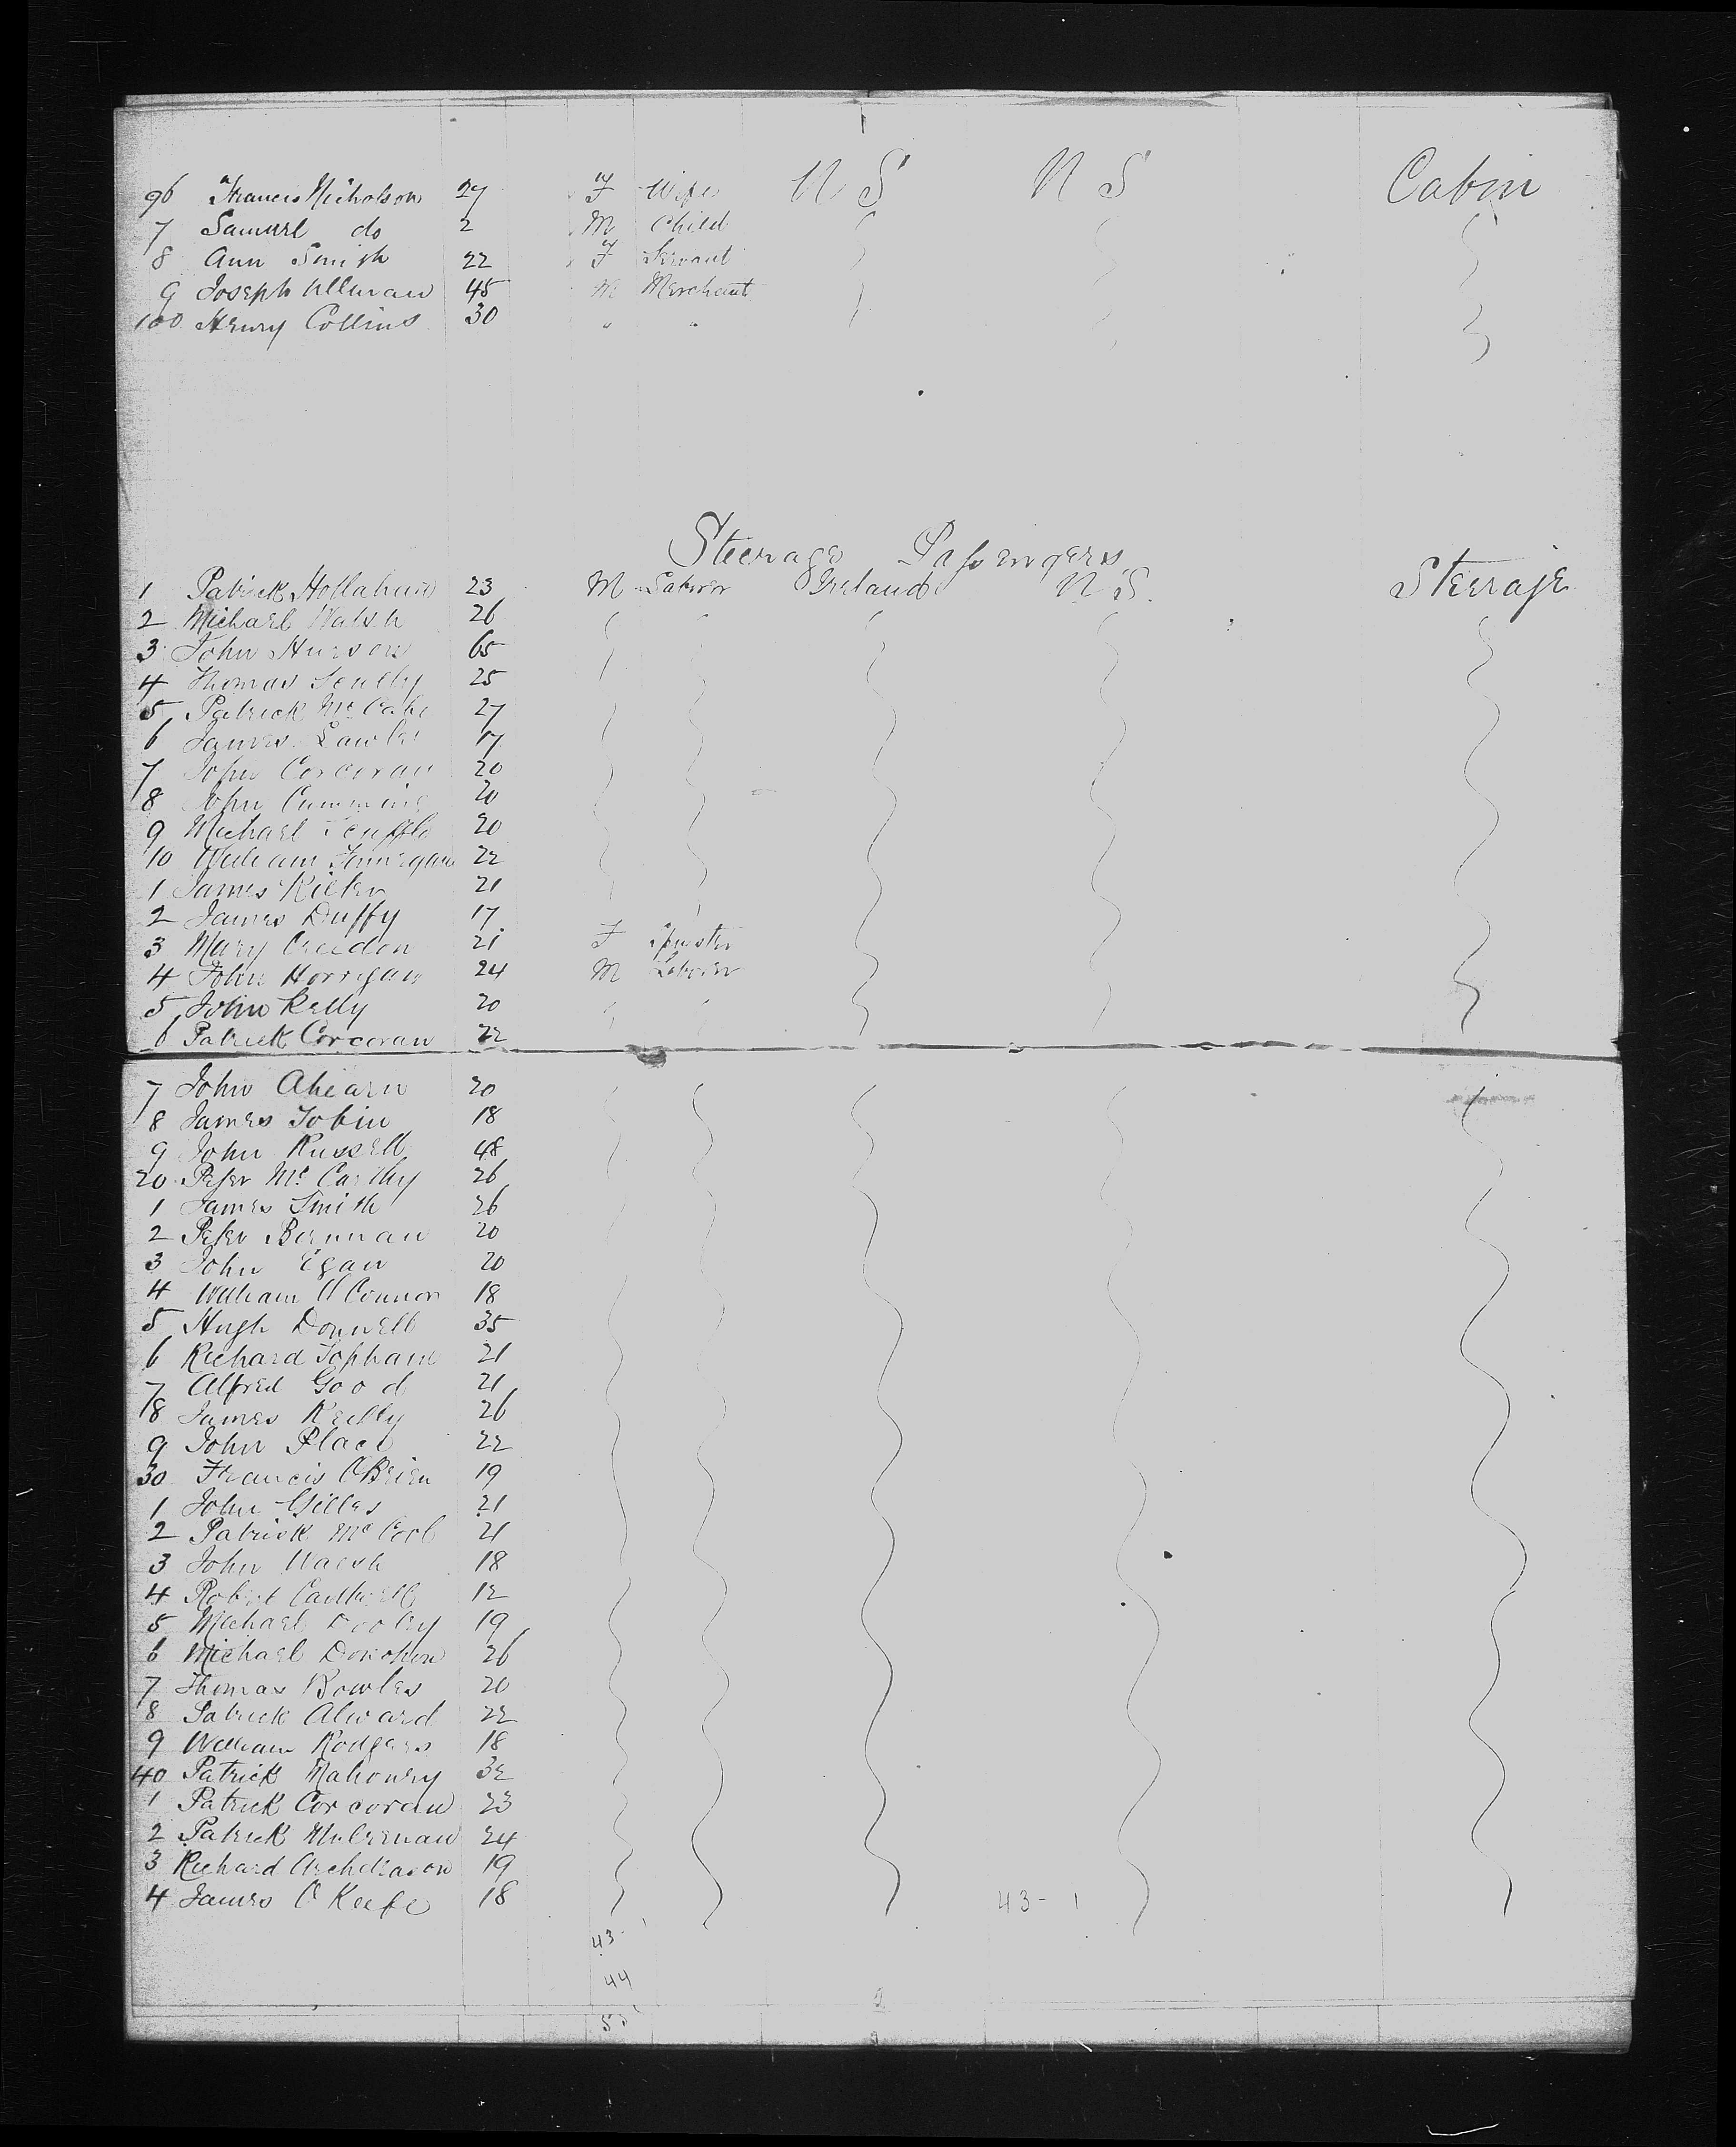 96 Francis Nicholson 27 F Wife U S U S Cabin
7 Samuel do 2 M Child
8 Ann Smith 22 F Servant
9 Joseph Ullman 45 M Merchant
100 Henry Collins 30 " "
Steerage Passengers
1 Patrick Hollahan 23 M Laborer Ireland U S. Steerage
2 Michael Walsh 26
3 John Hurson 65
4 Thomas Scully 25
5 Patrick McCabe 27
6 James Lawler 17
7 John Corcoran 20
8 John Cumming 20
9 Michael 20
10 William Finnegan 22
1 James 21
2 James Duffy 17
3 Mary Creedon 21 F Spinster
4 John Horrigan 24 M Laborer
5 John Kelly 20
6 Patrick Corcoran 22
7 John Ahearn 20
8 James Tobin 18
9 John Russell 48
20 Peter McCarthy 26
1 James Smith 26
2 Peter Brennan 20
3 John Egan 20
4 William O'Connor 18
5 Hugh Donnell 35
6 Richard Topham 21
7 Alfred Good 21
8 James Reilly 26
9 John Place 22
30 Francis O'Brien 19
1 John Gilles 21
2 Patrick 21
3 John Walsh 18
4 Robert 12
5 Michael Dooley 19
6 Michael Donohue 26
7 Thomas Bowles 20
8 Patrick Alward 22
9 William Rodgers 18
40 Patrick Mahoney 32
1 Patrick Corcoran 23
2 Patrick Mulrenan 24
3 Richard Archdeason 19
4 James O'Keefe 18 43 - 1
43
44